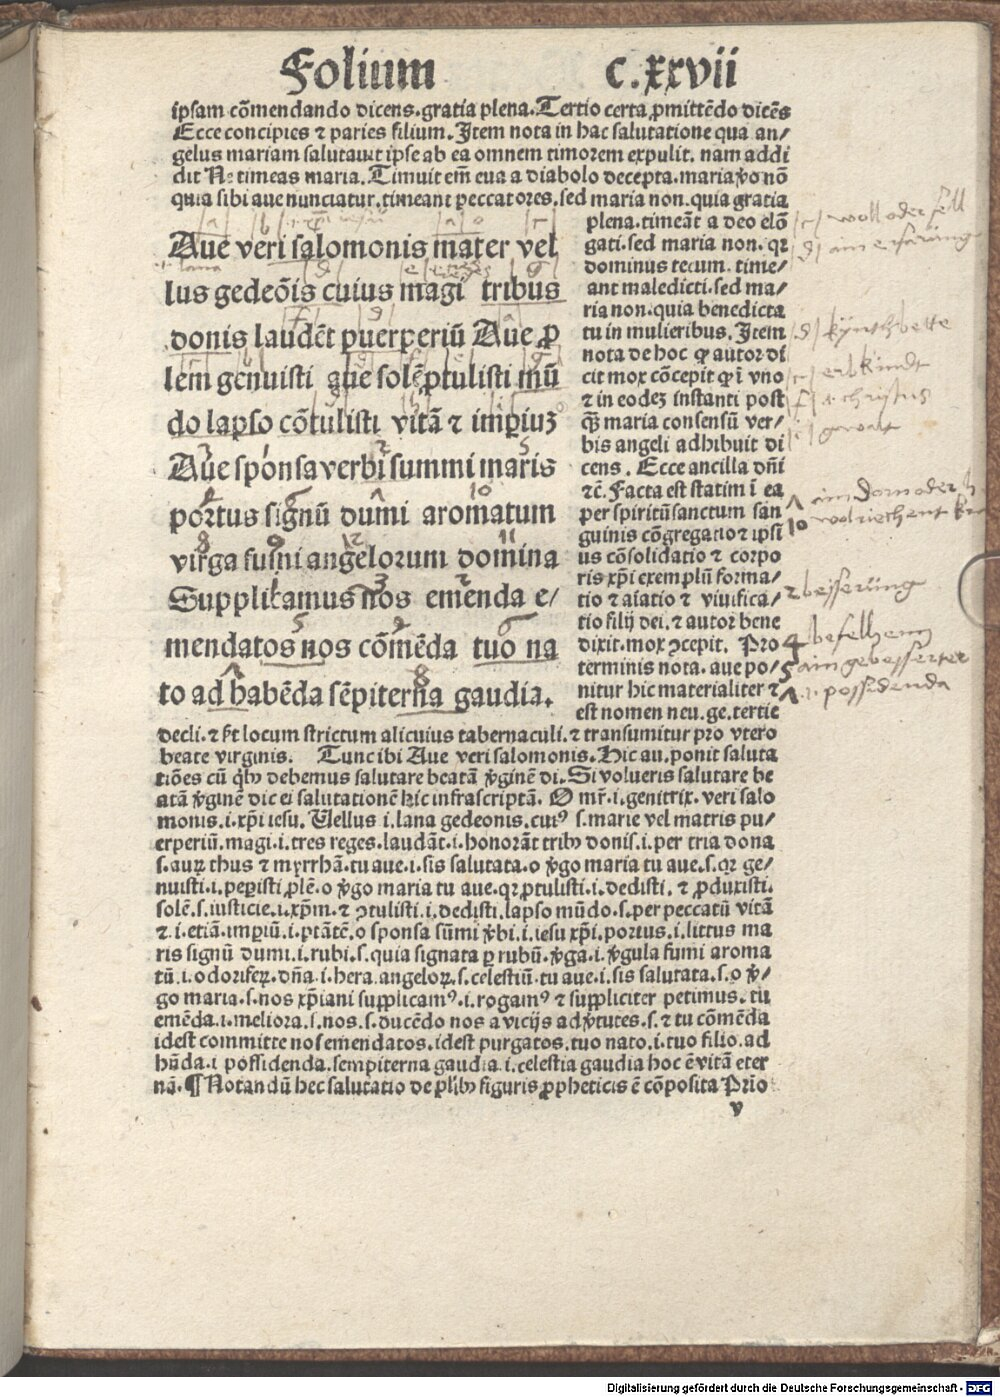 Folium c.xxvii
ipsam cõmendando dicens.gratia plena.Tertio certa ꝓmittẽdo dicẽs
Ecce concipies ⁊ paries filium.Item nota in hac salutatione qua an/
gelus mariam salutauit ipse ab ea omnem timorem expulit. nam addi
dit Ne timeas maria.Timuit em̃ eua a diabolo decepta.maria ꝟo nõ
quia sibi aue nunciatur.timeant peccatores.sed maria non.quia gratia
plena.timeãt a deo elõ
gati.sed maria non. qꝛ
dominus tecum. time/
ant maledicti.sed ma/
ria non.quia benedicta
tu in mulieribus. Item
nota de hoc ꝙ autor di
cit mox cõcepit ꝙ ĩ vno
⁊ in eodeȝ instanti post
ꝙ̃ maria consensũ ver/
bis angeli adhibuit di
cens. Ecce ancilla dñi
⁊c̃. Facta est statim ĩ ea
per spiritũsanctum san
guinis cõgregatio ⁊ ipsi
us cõsolidatio ⁊ corpo
ris xp̃i exemplũ forma/
tio ⁊ aĩatio ⁊ viuifica/
tio filij dei. ⁊ autor bene
dixit.mox ꝯcepit. Pro
terminis nota. aue po/
nitur hic materialiter ⁊
est nomen neu.ge.tertie
Aue veri salomonis mater vel
lus gedeõis cuius magi tribus
donis laudẽt puerperiũ Aue ꝓ
lem genuisti que solẽ ꝓtulisti mũ
do lapso cõtulisti vitã ⁊ impiuȝ
Aue sponsa verbi summi maris
portus signũ dumi aromatum
virga fumi angelorum domina
Supplicamus nos emenda e/
mendatos nos cõmẽda tuo na
to ad habẽda sẽpiterna gaudia.
decli. ⁊ ẜt locum strictum alicuius tabernaculi. ⁊ transumitur pro vtero
beate virginis. Tunc ibi Aue veri salomonis. Hic au. ponit saluta
tiões cũ qͥbꝫ debemus salutare beatã ꝟginẽ di. Si volueris salutare be
atã ꝟginẽ dic ei salutationẽ hic infrascriptã. O mr̃.i.genitrix. veri salo
monis.i.xp̃i iesu. Uellus i.lana gedeonis.cuiꝰ s.marie vel matris pu/
erperiũ.magi.i.tres reges.laudãt.i.honorãt tribꝫ donis.i.per tria dona
s.aurꝫ thus ⁊ myrrhã.tu aue.i.sis salutata.o ꝟgo maria tu aue.s.qꝛ ge/
nuisti.i.peperisti ꝓlẽ.o ꝟgo maria tu aue.qꝛ ꝓtulisti.i.dedisti. ⁊ ꝓduxisti.
solẽ.s.iusticie.i.xp̃m. ⁊ ꝯtulisti.i.dedisti.lapso mũdo.s.per peccatũ vitã
⁊.i.etiã.impiũ.i.ptãtẽ.o sponsa sũmi ꝟbi.i.iesu xp̃i.portus.i.littus ma
ris signũ dumi.i.rubi.s.quia signata ꝑ rubũ.ꝟga.i.ꝟgula fumi aroma
tũ.i.odoriferꝝ.dña.i.hera angeloꝝ.s.celestiũ.tu aue.i.sis salutata.s.o ꝟ/
go maria.s.nos xp̃iani supplicamꝰ.i.rogamꝰ ⁊ suppliciter petimus. tu
emẽda.i.meliora.s.nos.s.ducẽdo nos a vicijs ad ꝟtutes.s. ⁊ tu cõmẽda
idest committe nos emendatos.idest purgatos.tuo nato.i.tuo filio.ad
hñda.i possidenda.sempiterna gaudia.i.celestia gaudia hoc ẽ vitã eter
nã.¶Notandũ hec salutatio de pͥlibꝫ figuris ꝓpheticis ẽ cõposita Prĩo
v
woll oder fell
kyndtbette
christus
gewalt
besserung
ain gebesserter
.i. possidenda
Digitalisierung gefördert durch die Deutsche Forschungsgemeinschaft - DFG